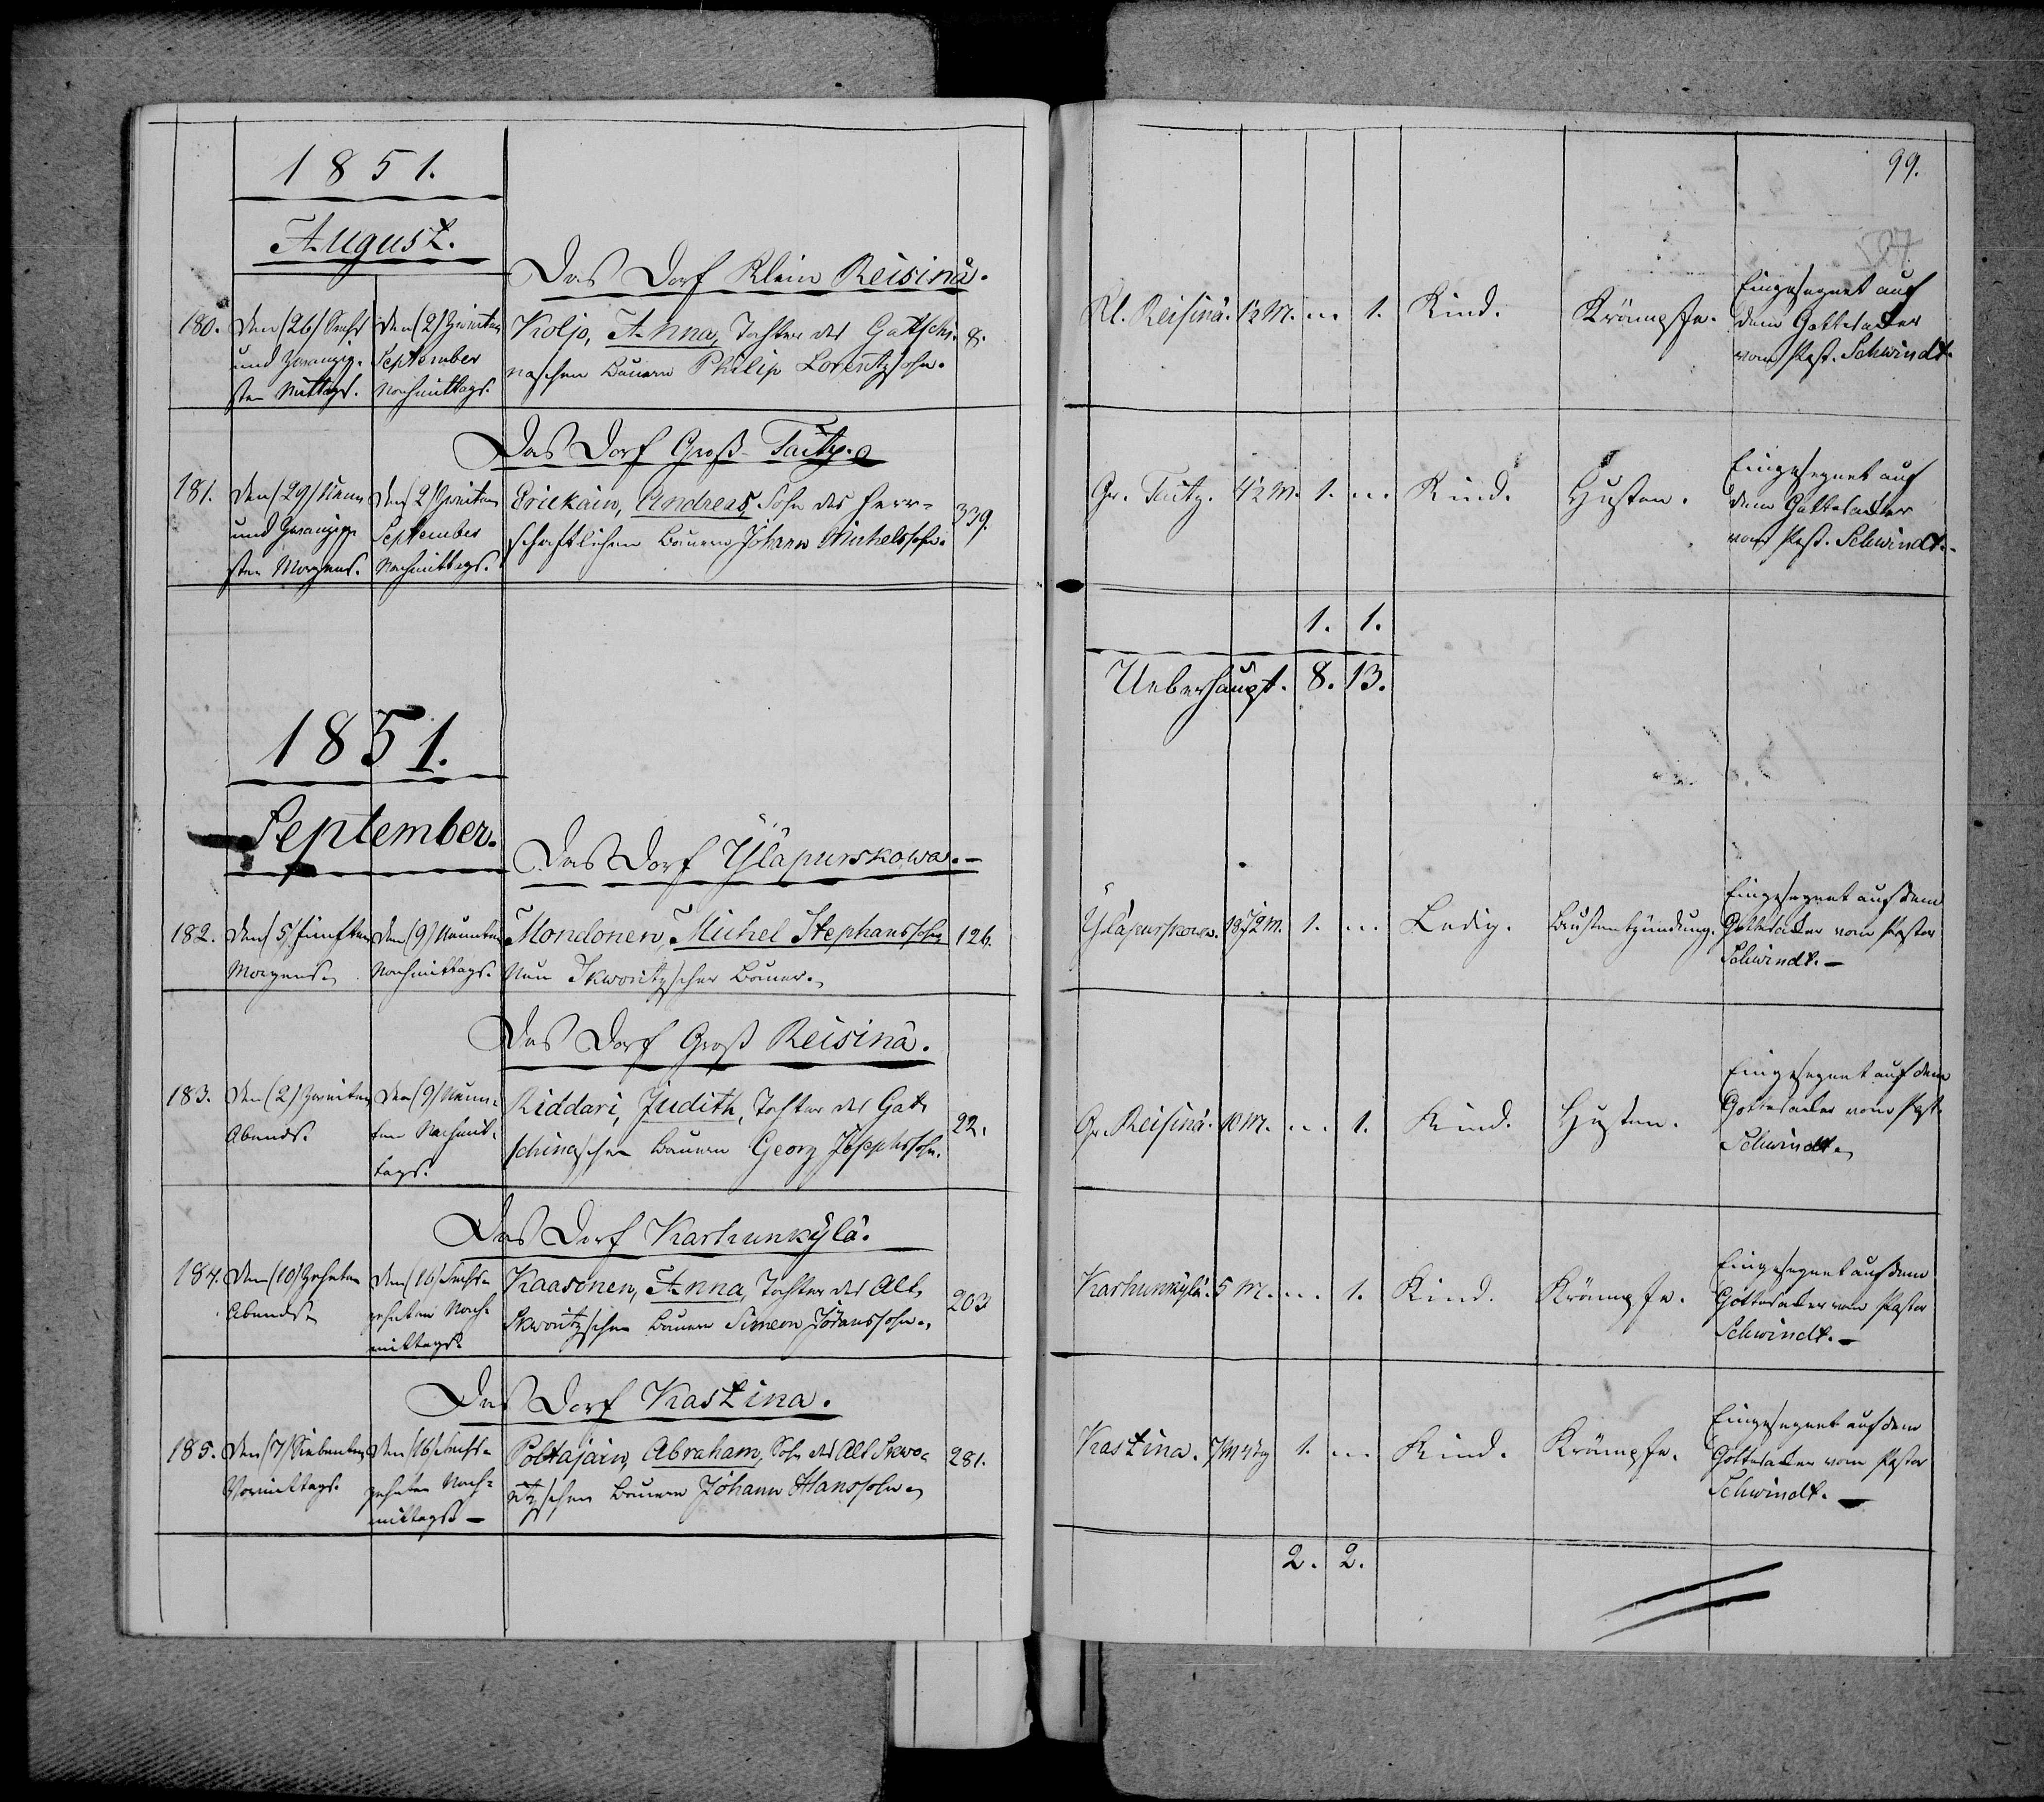 1851.
August.
Das Dorf Klein Reisinä.
180. Den (26) Sechs Den (2) Zweiten Koljo, Anna, Tochter des Gattschi- 8.
und zwanzig- September naschen Bauern Philip Lorentzsohn.
sten Mittags. Nachmittags.
Das Dorf Groß Taitz.
181. Den (29) Neun Den (2) Zweiten Eriekäin, Andreas, Sohn des herr- 339.
und zwanzig- September schaftlichen Bauern Johann Michelssohn.
sten Morgens. Nachmittags.
1851.
September.
Das Dorf Yläpurskowa.
182. Den (5) fünften Den (9) Neunten Mondonen, Michel Stephanssohn 126.
Morgens. Nachmittags. Neu Skworitzscher Bauer.
Das Dorf Groß Reisinä.
183. Den (2) Zweiten Den (9) Neun- Riddari, Judith, Tochter des Gat- 22.
Abends. ten Nachmit- schinaschen Bauern Georg Josephssohn.
tags.
Das Dorf Karhunkylä.
184. Den (10) Zehnten Den (16) Sechs- Kaasonen, Anna, Tochter des Alt 203
Abends zehnten Nach- Skworitzschen Bauern Simeon Jöranssohn.
mittags.
Das Dorf Kastina.
185. Den (7) Siebenten Den (16) Sechs- Poltajain, Abraham, Sohn des Alt Skwo- 281.
Vormittags. zehnten Nach- ritzschen Bauern Johann Hanssohn.
mittags.
99.
127
Eingesegnet auf
Kl. Reisinä. 1/2 M. " 1. Kind. Krämpfe. dem Gottesacker
vom Past. Schwindt.
Eingesegnet auf
Gr. Taitz. 4 1/2 M. 1. " Kind. Husten. dem Gottesacker
vom Past. Schwindt.
1. 1.
Ueberhaupt. 8. 13.
Eingesegnet auf dem
Yläpurskowa. 1. " Ledig. Brustentzündung. Gottesacker vom Pastor
Schwindt.
Eingesegnet auf dem
Gr. Reisinä. 10 M. " 1. Kind. Husten. Gottesacker vom Past.
Schwindt.
Eingesegnet auf dem
Karhunkylä. 5 M. " 1. Kind. Krämpfe. Gottesacker vom Pastor
Schwindt.
Eingesegnet auf dem
Kastina. 1. " Kind. Krämpfe. Gottesacker vom Pastor
Schwindt.
2. 2.